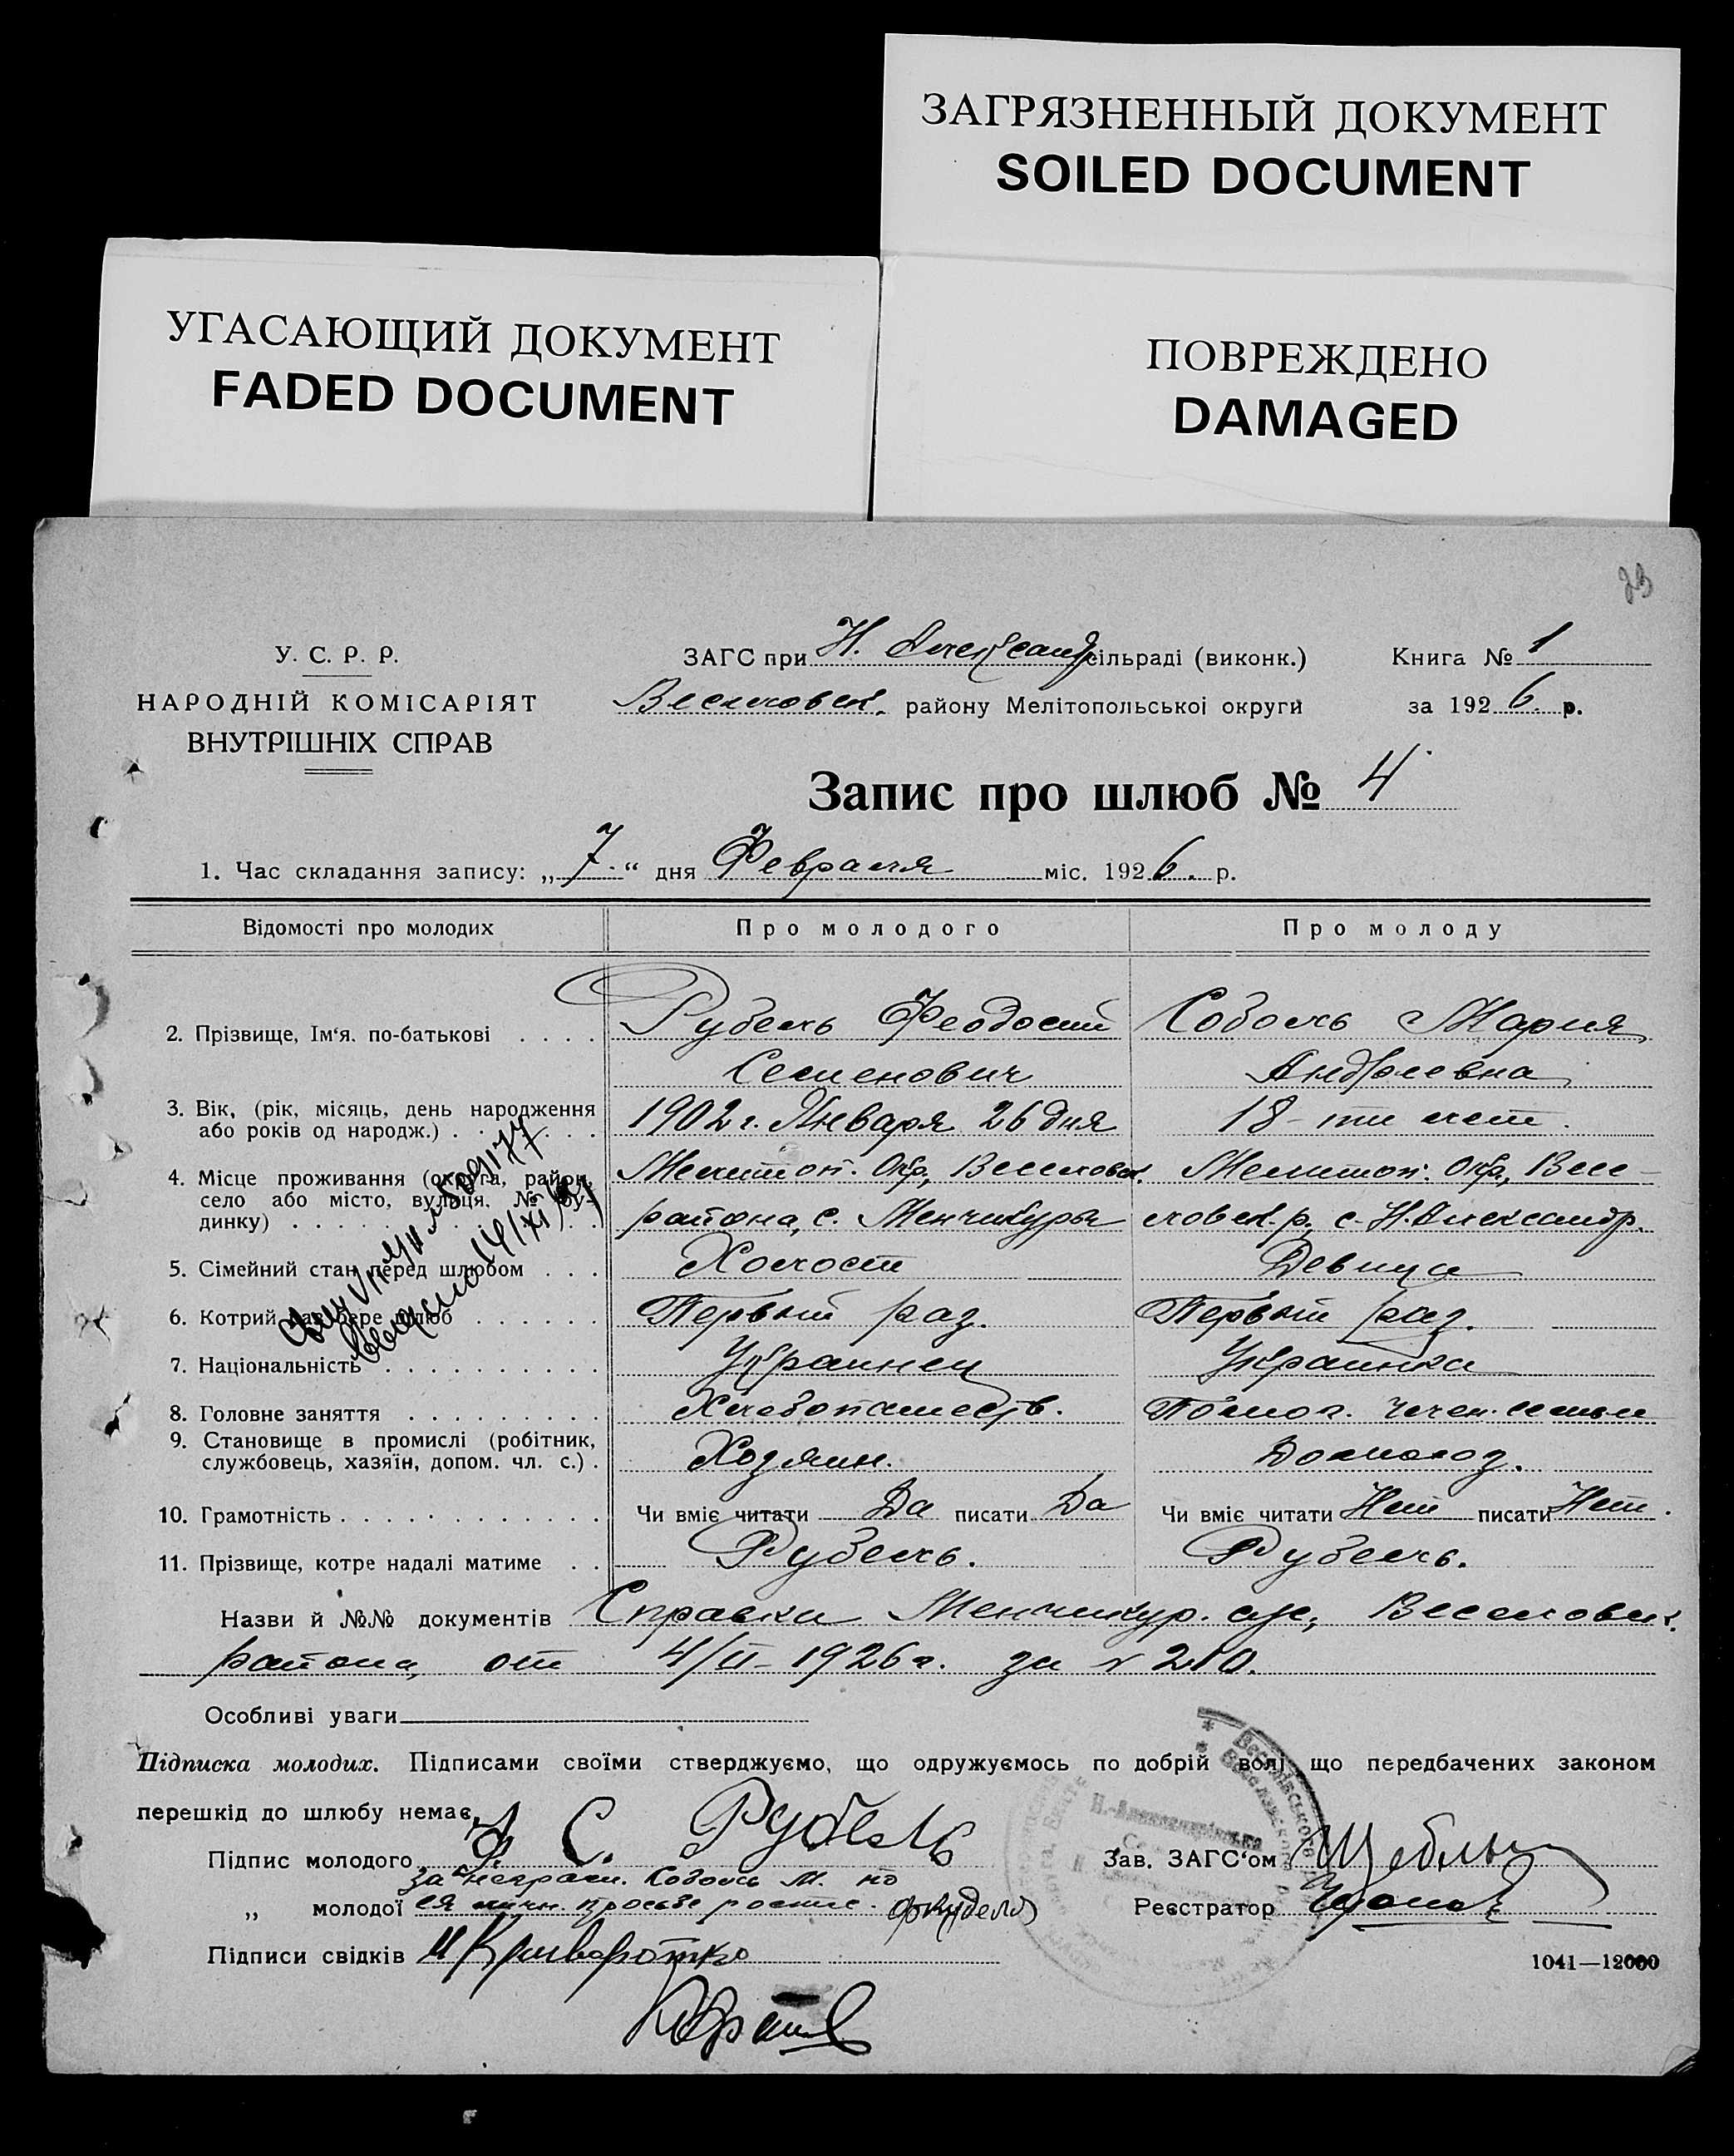 ЗАГРЯЗНЕННЫЙ ДОКУМЕНТ
SOILED DOCUMENT
УГАСАЮЩИЙ ДОКУМЕНТ
FADED DOCUMENT
ПОВРЕЖДЕНО
DAMAGED
У. С. Р. Р.
НАРОДНІЙ КОМІСАРІЯТ
ВНУТРІШНІХ СПРАВ
ЗАГС при Н. Александр сільраді (виконк.)
Книга № 1
Веселовск. району Мелітопольської округи
за 1926 р.
Запис про шлюб № 4
1. Час складання запису: „7“ дня Февраля міс. 1926. р.
Відомості про молодих Про молодого Про молоду
2. Прізвище, Ім'я. по-батькові Рубель Феодосий Соболь Мария
Семенович Андреевна
3. Вік, (рік, місяць, день народження
або років од народж.) 1902 г. Января 26 дня 18-ти лет.
4. Місце проживання (округа, район, Мелитоп. Окр., Веселовск. Мелитоп. Окр., Весе-
село або місто, вулиця, № бу-
динку) района, с. Менчикуры ловск. р., с. Н. Александр.
5. Сімейний стан перед шлюбом Холост Девица
6. Котрий раз бере шлюб Первый раз. Первый раз.
7. Національність Украинец Украинка
8. Головне заняття Хлебопашеств. Помог. член. семьи
9. Становище в промислі (робітник,
службовець, хазяїн, допом. чл. с.) Хозяин. Домохоз.
10. Грамотність Чи вміє читати Да писати Да Чи вміє читати Нет писати Нет.
11. Прізвище, котре надалі матиме Рубель. Рубель.
Назви й №№ документів Справка Менчикур. с/с, Веселовск.
района, от 4/II-1926 г. за № 210.
Особливі уваги
Підписка молодих. Підписами своїми стверджуємо, що одружуємось по добрій волі, що передбачених законом
перешкід до шлюбу немає.
Підпис молодого Ф. С. Рубель
Зав. ЗАГС'ом
за неграм. Соболь М. по
„ молодої ея личн. просьбе роспис.
Реєстратор
Підписи свідків
1041—12000